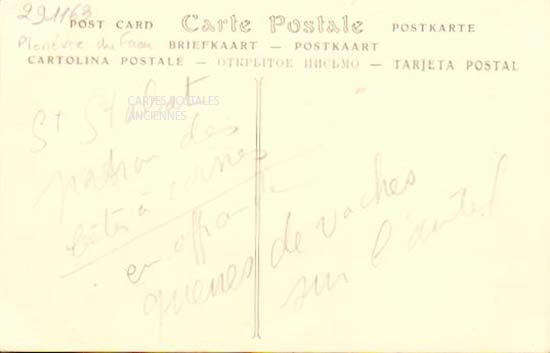 291163
POST CARD Carte Postale POSTKARTE
Plonévez du Faou
BRIEFKAART — POSTKAART
CARTOLINA POSTALE — ОТКРЫТОЕ ПИСЬМО — TARJETA POSTAL
CARTES POSTALES
ANCIENNES
St
patron des
bêtes à cornes
en offrande
queues de vaches
sur l'autel